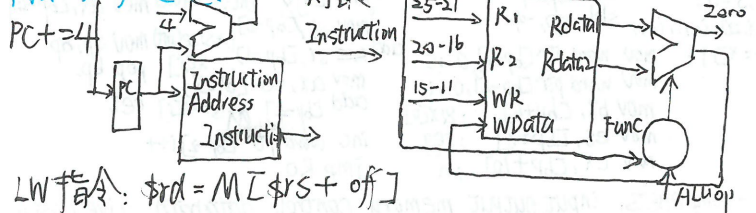 PC+=4
4
PC
Instruction
Address
Instructi
Instruction
25-21
20-16
15-11
R1
R2
WR
WData
Rdata1
Rdata2
Zero
Func
ALUop
LW指令: $rd = M[$rs + off]